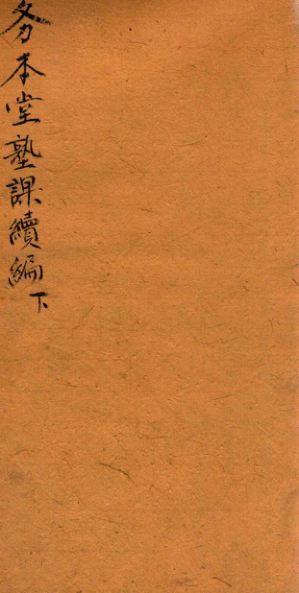 务本堂塾課續編下